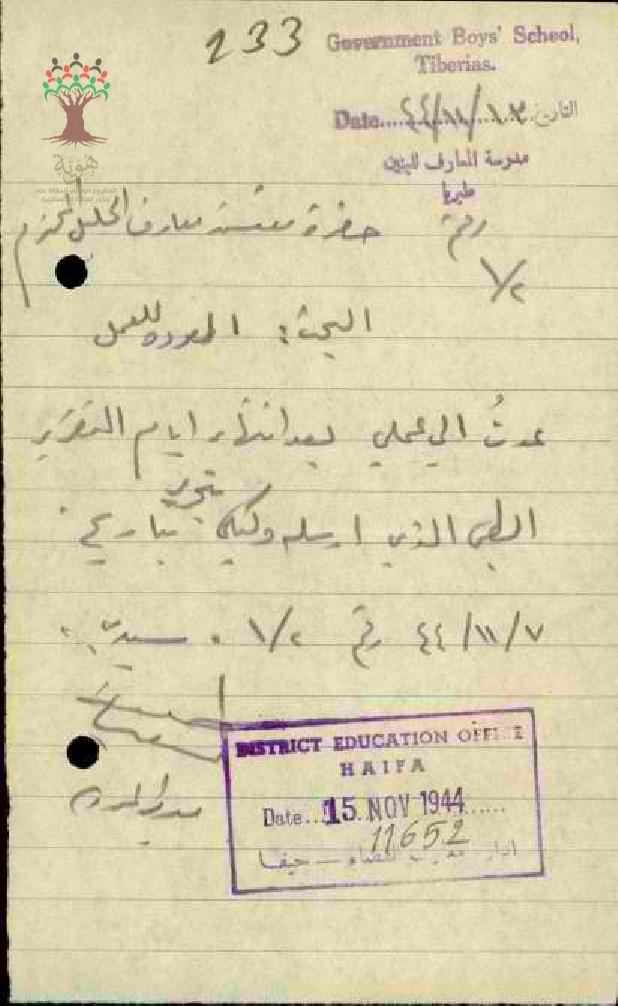 233
Government Boys' School,
Tiberias.
Date....٤٤/١١/١٣....التاريخ
مدرسة المعارف للبنين
طبريا
هوية
رقم
١/٢
حضرة مفتش معارف الجليل المحترم
البحث: العوده للعمل
عدتُ الى عملي بعد انتهاء ايام التقرير
الطبي الذي ارسله وكيلي بتاريخ
٤٤/١١/٧ رقم ١/٢ . سيدي
DISTRICT EDUCATION OFFICE
HAIFA
Date...15 NOV 1944......
11652
حيفا
مدير المدرسة